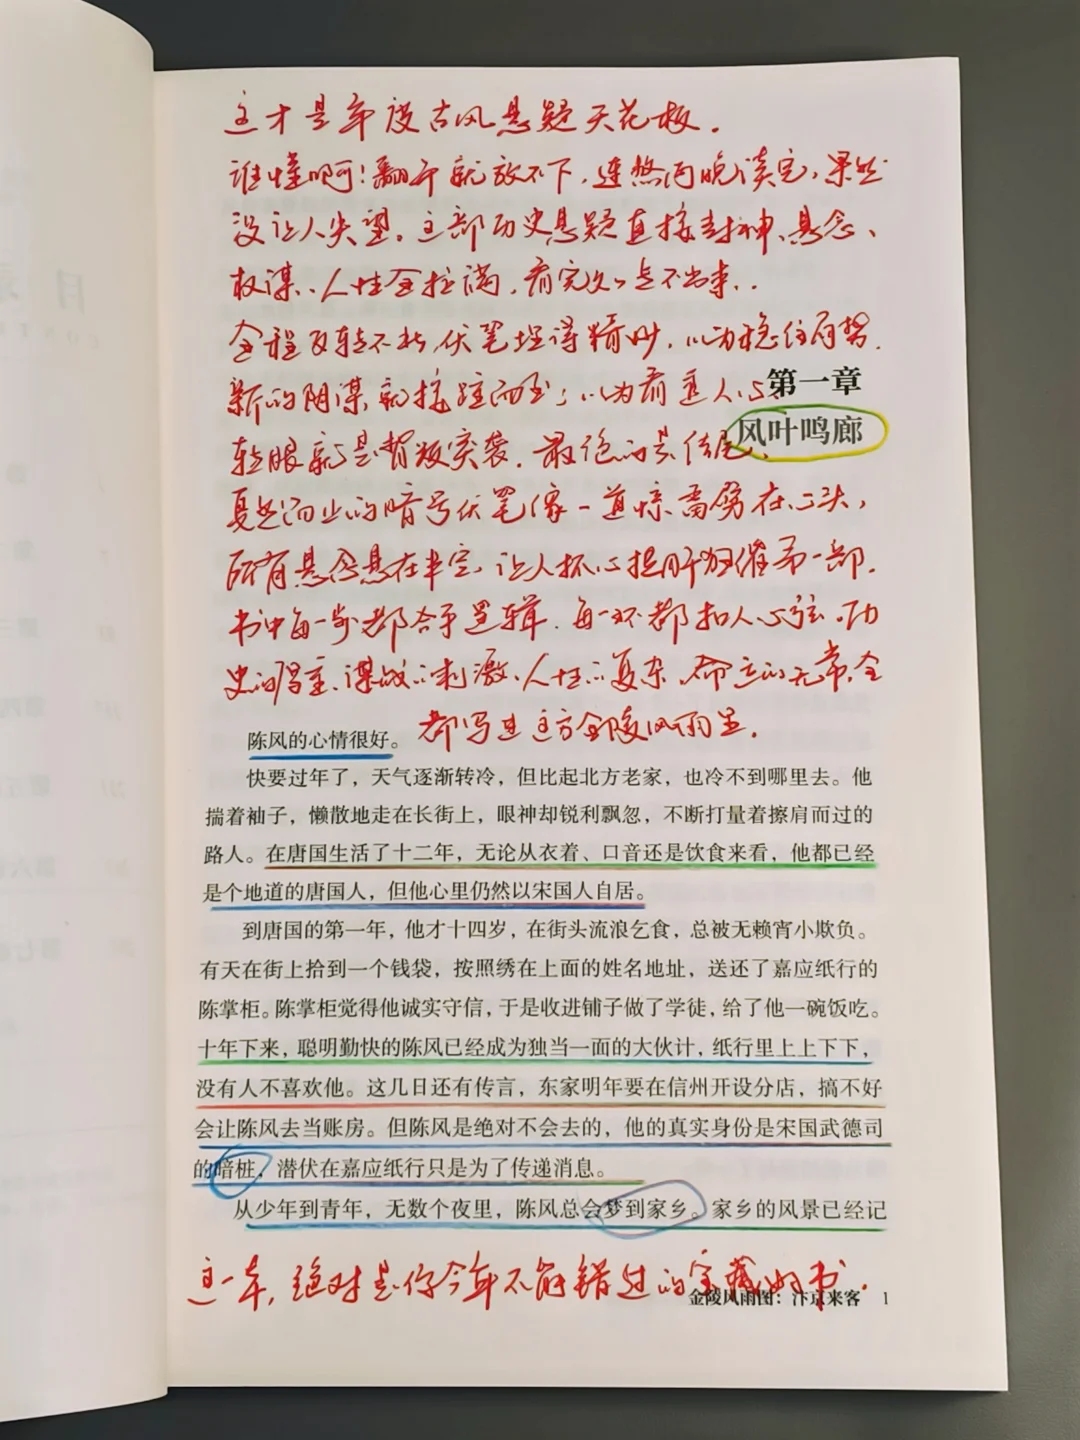 这才是年度古风悬疑天花板.
谁懂啊!翻开就放不下,连熬两晚读完,果然
没让人失望。这部历史悬疑直接封神、悬念、
权谋、人性全拉满,看完久久出不来..
全程反转不断,伏笔埋得精妙,以为稳住局势.
新的阴谋就接踵而至;以为看透人心、
第一章
转眼就是背叛突袭.最绝的是结尾、
风叶鸣廊
戛然而止的暗号伏笔像一道惊雷劈在心头,
所有悬念悬在半空,让人抓心挠肝狂催第一部.
书中每一步都合乎逻辑.每一环都扣人心弦。历
史的厚重、谋战的刺激、人性的复杂、命运的无常,全
都写进这方金陵风雨里.
陈风的心情很好。
快要过年了，天气逐渐转冷，但比起北方老家，也冷不到哪里去。他
揣着袖子，懒散地走在长街上，眼神却锐利飘忽，不断打量着擦肩而过的
路人。在唐国生活了十二年，无论从衣着、口音还是饮食来看，他都已经
是个地道的唐国人，但他心里仍然以宋国人自居。
到唐国的第一年，他才十四岁，在街头流浪乞食，总被无赖宵小欺负。
有天在街上拾到一个钱袋，按照绣在上面的姓名地址，送还了嘉应纸行的
陈掌柜。陈掌柜觉得他诚实守信，于是收进铺子做了学徒，给了他一碗饭吃。
十年下来，聪明勤快的陈风已经成为独当一面的大伙计，纸行里上上下下，
没有人不喜欢他。这几日还有传言，东家明年要在信州开设分店，搞不好
会让陈风去当账房。但陈风是绝对不会去的，他的真实身份是宋国武德司
的暗桩，潜伏在嘉应纸行只是为了传递消息。
从少年到青年，无数个夜里，陈风总会梦到家乡。家乡的风景已经记
这一本,绝对是你今年不能错过的宝藏好书.
金陵风雨图：汴京来客 1